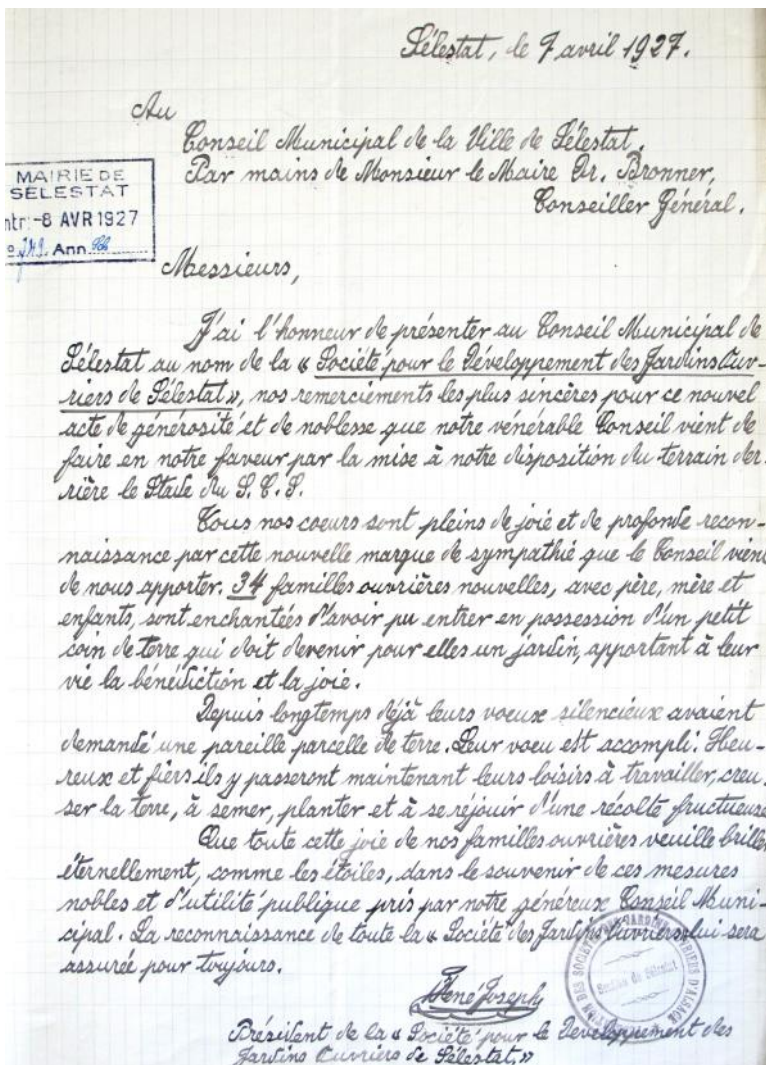 Sélestat, le 7 avril 1927.
Au
Conseil Municipal de la Ville de Sélestat.
Par mains de Monsieur le Maire Dr. Bronner,
Conseiller Général.
MAIRIE DE
SÉLESTAT
ntr: -8 AVR 1927
Ann
Messieurs,
J'ai l'honneur de présenter au Conseil Municipal de
Sélestat au nom de la « Société pour le Développement des Jardins Ouv-
riers de Sélestat», nos remerciements les plus sincères pour ce nouvel
acte de générosité et de noblesse que notre vénérable Conseil vient de
faire en notre faveur par la mise à notre disposition du terrain der-
rière le Stade du S. C. S.
Tous nos coeurs sont pleins de joie et de profonde recon-
naissance par cette nouvelle marque de sympathie que le Conseil vient
de nous apporter. 34 familles ouvrières nouvelles, avec père, mère et
enfants, sont enchantées d'avoir pu entrer en possession d'un petit
coin de terre qui doit devenir pour elles un jardin, apportant à leur
vie la bénédiction et la joie.
Depuis longtemps déjà leurs voeux silencieux avaient
demandé une pareille parcelle de terre. Leur voeu est accompli. Heu-
reux et fiers ils y passeront maintenant leurs loisirs à travailler, creu-
ser la terre, à semer, planter et à se réjouir d'une récolte fructueuse
Que toute cette joie de nos familles ouvrières veuille briller
éternellement, comme les étoiles, dans le souvenir de ces mesures
nobles et d'utilité publique pris par notre généreux Conseil Muni-
cipal. La reconnaissance de toute la « Société des Jardins Ouvriers lui sera
assurée pour toujours.
René Joseph
DES SOCIÉTÉS DES JARDINS OUVRIERS D'ALSACE
Section de Sélestat
Président de la « Société pour le Développement des
Jardins Ouvriers de Sélestat,»